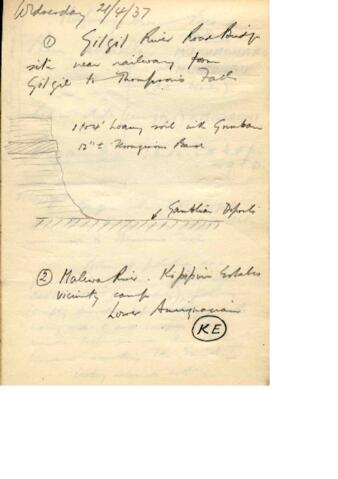 Wednesday 21/4/37
① Gilgil River Road Bridge
site near railway from
Gilgil to Thompson's Falls
loamy soil with Gumban
12" ± Ferruginous Band
Gamblian Deposits
② Malewa River. Estates
vicinity camp
Lower Aurignacian
KE